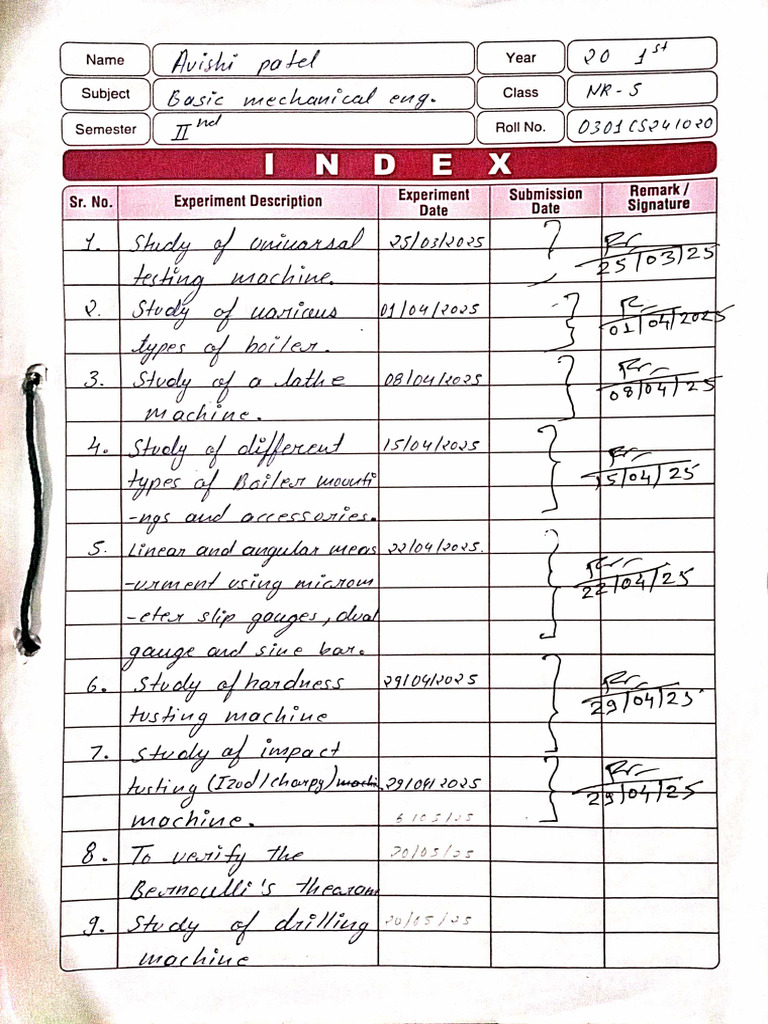 Name Avishi patel Year 20 1st
Subject Basic mechanical eng. Class NR-5
Semester IInd Roll No. 0301CS241020
INDEX
Sr. No. Experiment Description Experiment Date Submission Date Remark / Signature
1. Study of universal 25/03/2025
testing machine. 25/03/25
2. Study of various 01/04/2025 01/04/2025
types of boiler.
3. Study of a lathe 08/04/2025 08/04/25
machine.
4. Study of different 15/04/2025
types of Boiler mounti 15/04/25
-ngs and accessories.
5. Linear and angular meas 22/04/2025.
-urment using microm 22/04/25
-eter slip gauges, dual
gauge and sine bar.
6. Study of hardness 29/04/2025
tusting machine 29/04/25
7. Study of impact
tusting (Izod/charpy) machi 29/04/2025 29/04/25
machine. 6/05/25
8. To verify the 20/05/25
Bernoulli's thearom
9. Study of drilling 20/05/25
machine